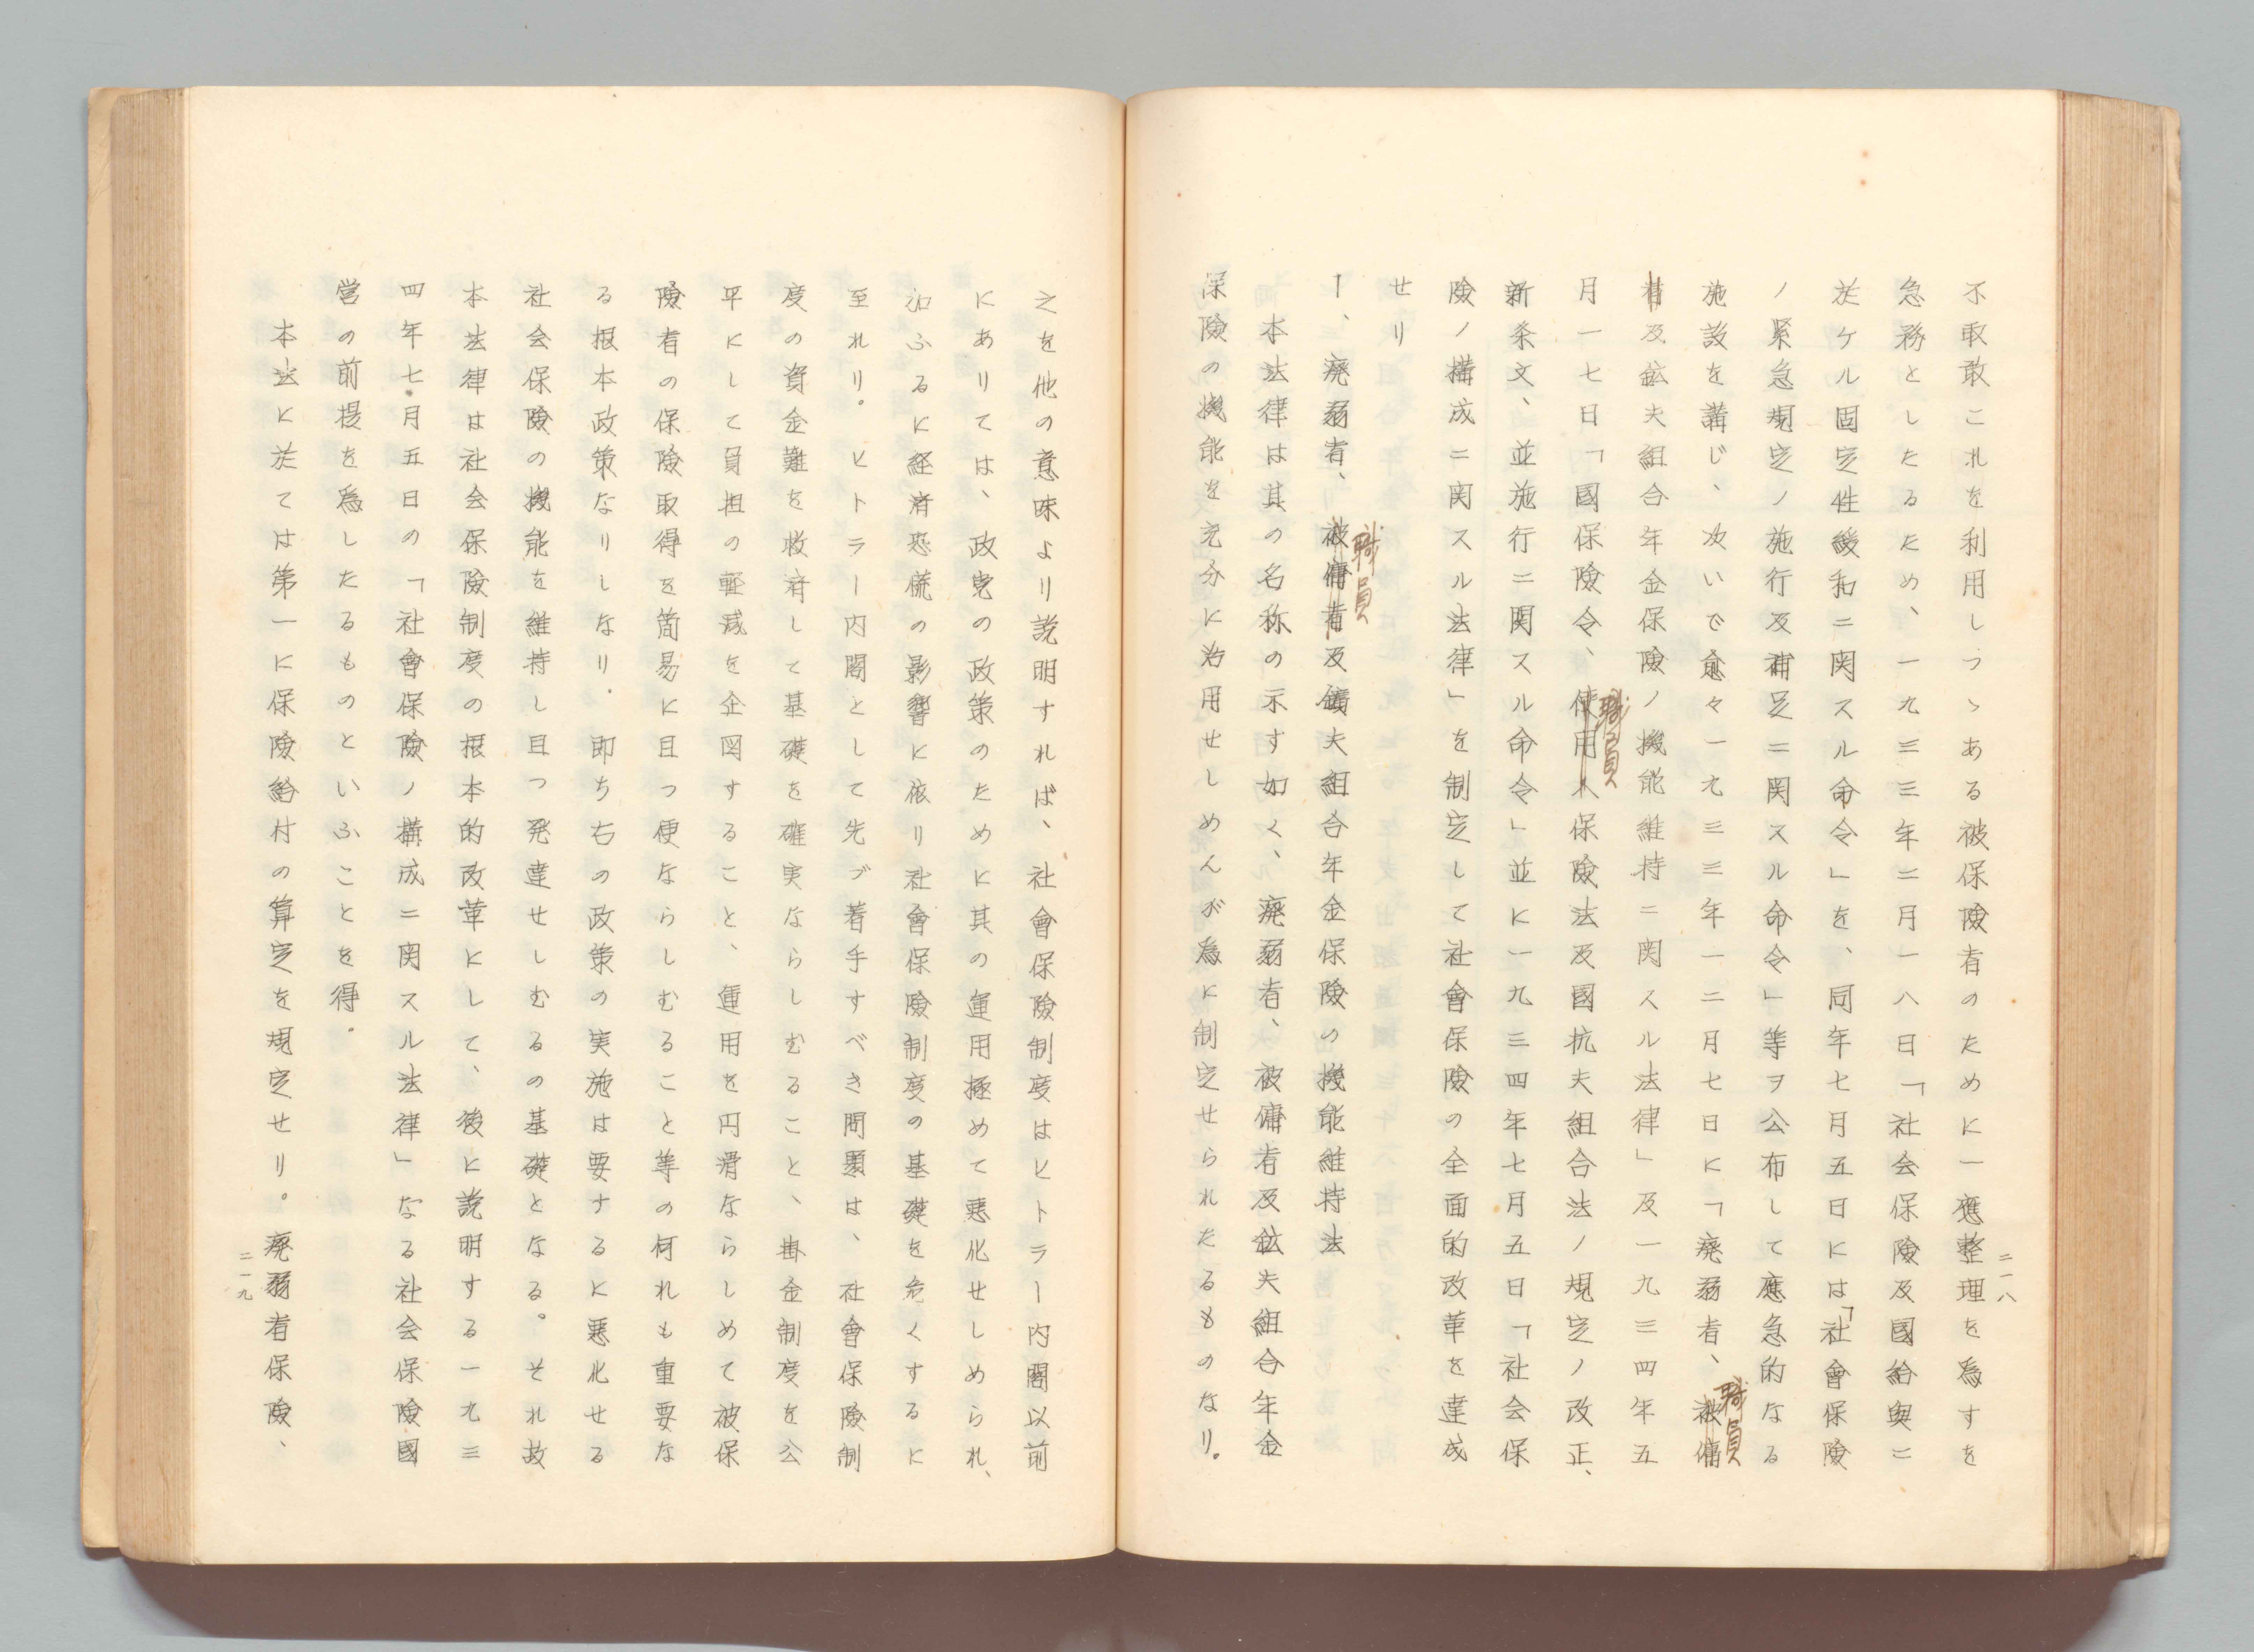 不取敢これを利用しつゝある被保險者のために一應整理を爲すを
急務としたるため、一九三三年二月一八日「社会保險及國給與ニ
於ケル固定性緩和ニ関スル命令」を、同年七月五日には「社會保險
ノ緊急規定ノ施行及補足ニ関スル命令」等ヲ公布して應急的なる
施設を講じ、次いで愈々一九三三年一二月七日に「廃弱者、被傭
職員
者及鉱夫組合年金保險ノ機能維持ニ関スル法律」及一九三四年五
月一七日「國保險令、使用人保險法及國抗夫組合法ノ規定ノ改正、
職員
新条文、並施行ニ関スル命令」並に一九三四年七月五日「社会保
險ノ構成ニ関スル法律」を制定して社會保險の全面的改革を達成
せり
1、廃弱者、被傭者及鑛夫組合年金保險の機能維持法
職員
本法律は其の名称の示す如く、廃弱者、被傭者及鉱夫組合年金
保險の機能を充分に活用せしめんが爲に制定せられたるものなり。
二一八
之を他の意味より説明すれば、社會保險制度はヒトラー内閣以前
にありては、政党の政策のために其の運用極めて悪化せしめられ、
加ふるに経済恐慌の影響に依り社會保險制度の基礎を危くするに
至れり。ヒトラー内閣として先づ着手すべき問題は、社會保險制
度の資金難を救済して基礎を確実ならしむること、掛金制度を公
平にして負担の軽減を企図すること、運用を円滑ならしめて被保
險者の保險取得を簡易に且つ便ならしむること等の何れも重要な
る根本政策なりしなり。即ち右の政策の実施は要するに悪化せる
社会保險の機能を維持し且つ発達せしむるの基礎となる。それ故
本法律は社会保險制度の根本的改革にして、後に説明する一九三
四年七月五日の「社會保險ノ構成ニ関スル法律」なる社会保險國
営の前提を爲したるものといふことを得。
本法に於ては第一に保險給付の算定を規定せり。廃弱者保險、
二一九